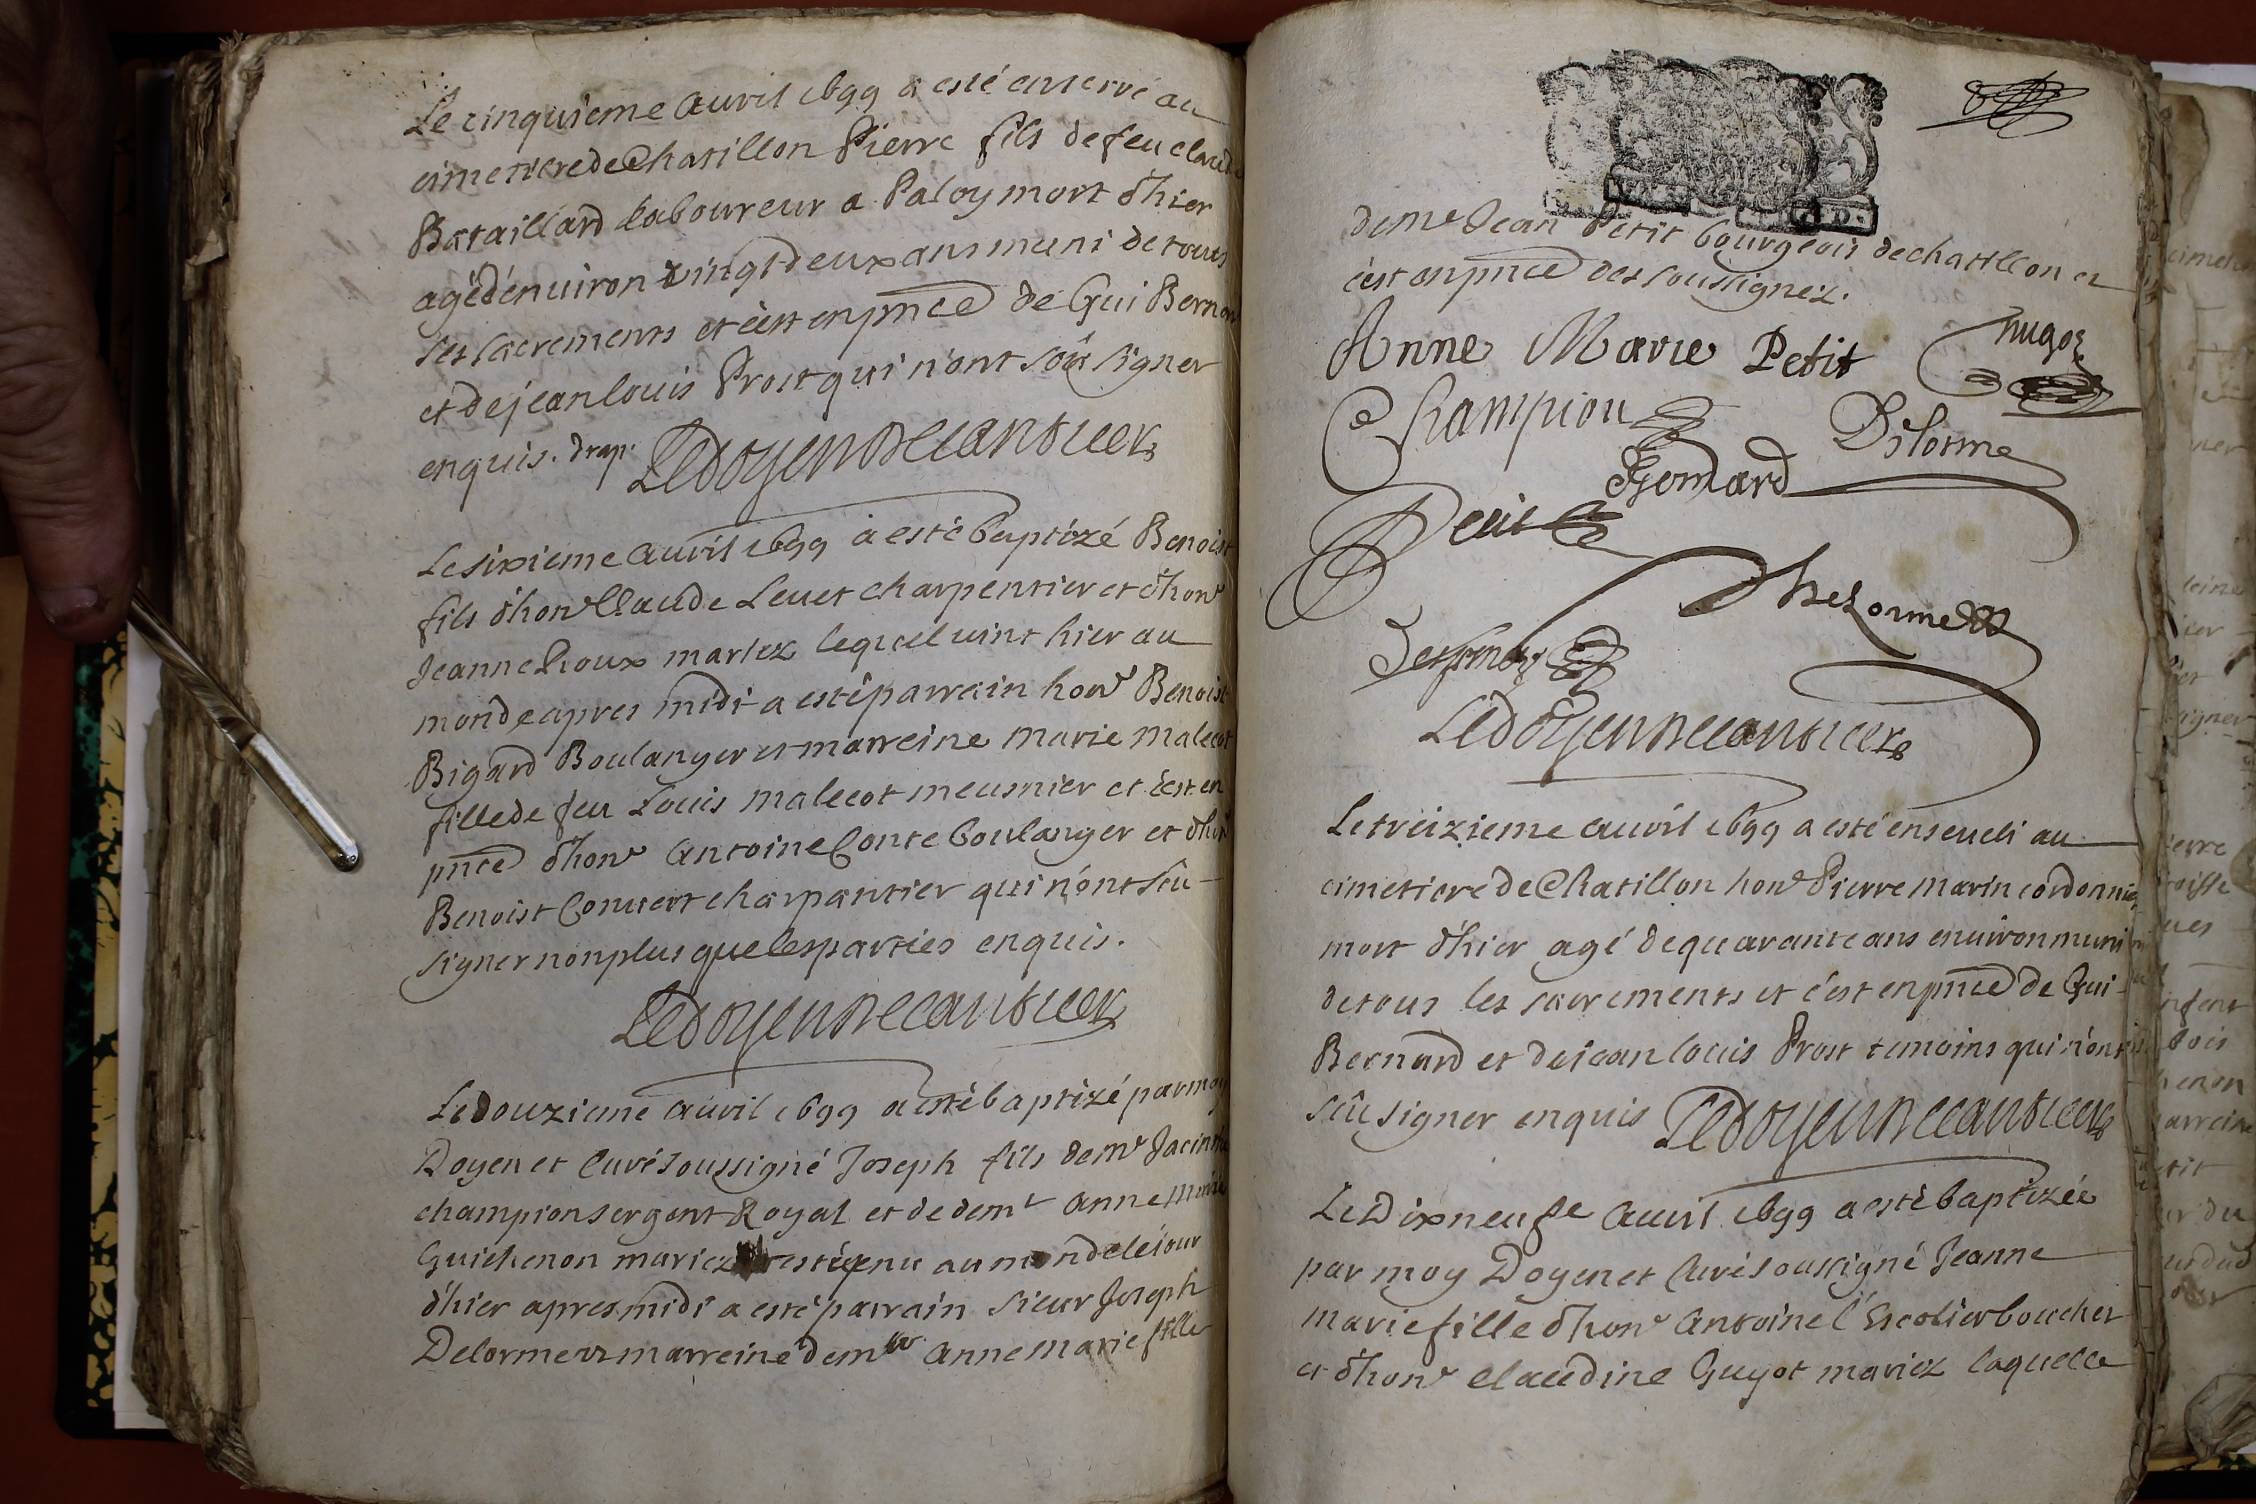 Le cinquieme auvril 1699 a esté enterré au
cimetiere de Chatillon Pierre fils de feu claude
Bataillard Laboureur a Paloy mort d'hier
agé d'enuiron vingt deux ans muni de tous
ses sacrements et c'est en pnce de Gui Bernard
et de jean louis Prost qui n'ont sceu signer
enquis. drap.
Le doyen De Cantuer
Le sixieme auvril 1699 a esté baptizé Benoist
fils d'hone Claude Leuet charpentier et d'hone
Jeanne Rioux mariez lequel uint hier au
monde apres midi a esté parrain hone Benoist
Bigard Boulanger et marreine marie malecot
fille de feu Louis malecot meusnier et c'est en
pnce d'hone Antoine Conte boulanger et d'hone
Benoist Conuert charpantier qui n'ont sçu
signer non plus que les parties enquis.
Le doyen De Cantuer
Le douzieme auvril 1699 a esté baptizé par moy
Doyen et Curé soussigné Joseph fils de mr Jacinthe
champion sergent Royal et de demle anne marie
Guichenon mariez est uenu au monde le jour
d'hier apres midi a esté parrain sieur Joseph
Delorme et marreine demlle anne marie fille
de mr Jean Petit bourgeois de chatillon et
c'est en pnce des soussignez.
Anne Marie Petit hugoz
Champion Dilorme
Gomard
Petit
Delorme
Le doyen De Cantuer
Le treizieme auvril 1699 a esté enseueli au
cimetiere de Chatillon hone Pierre marin cordonnier
mort d'hier agé de quarante ans enuiron muni
de tous les sacrements et c'est en pnce de Gui
Bernard et de jean louis Prost temoins qui n'ont
sçu signer enquis Le doyen De Cantuer
Le Dixneufe auvril 1699 a esté baptizée
par moy Doyen et Curé soussigné Jeanne
marie fille d'hone antoine l'Escolier boucher
et d'hone claudine Guyot mariez laquelle